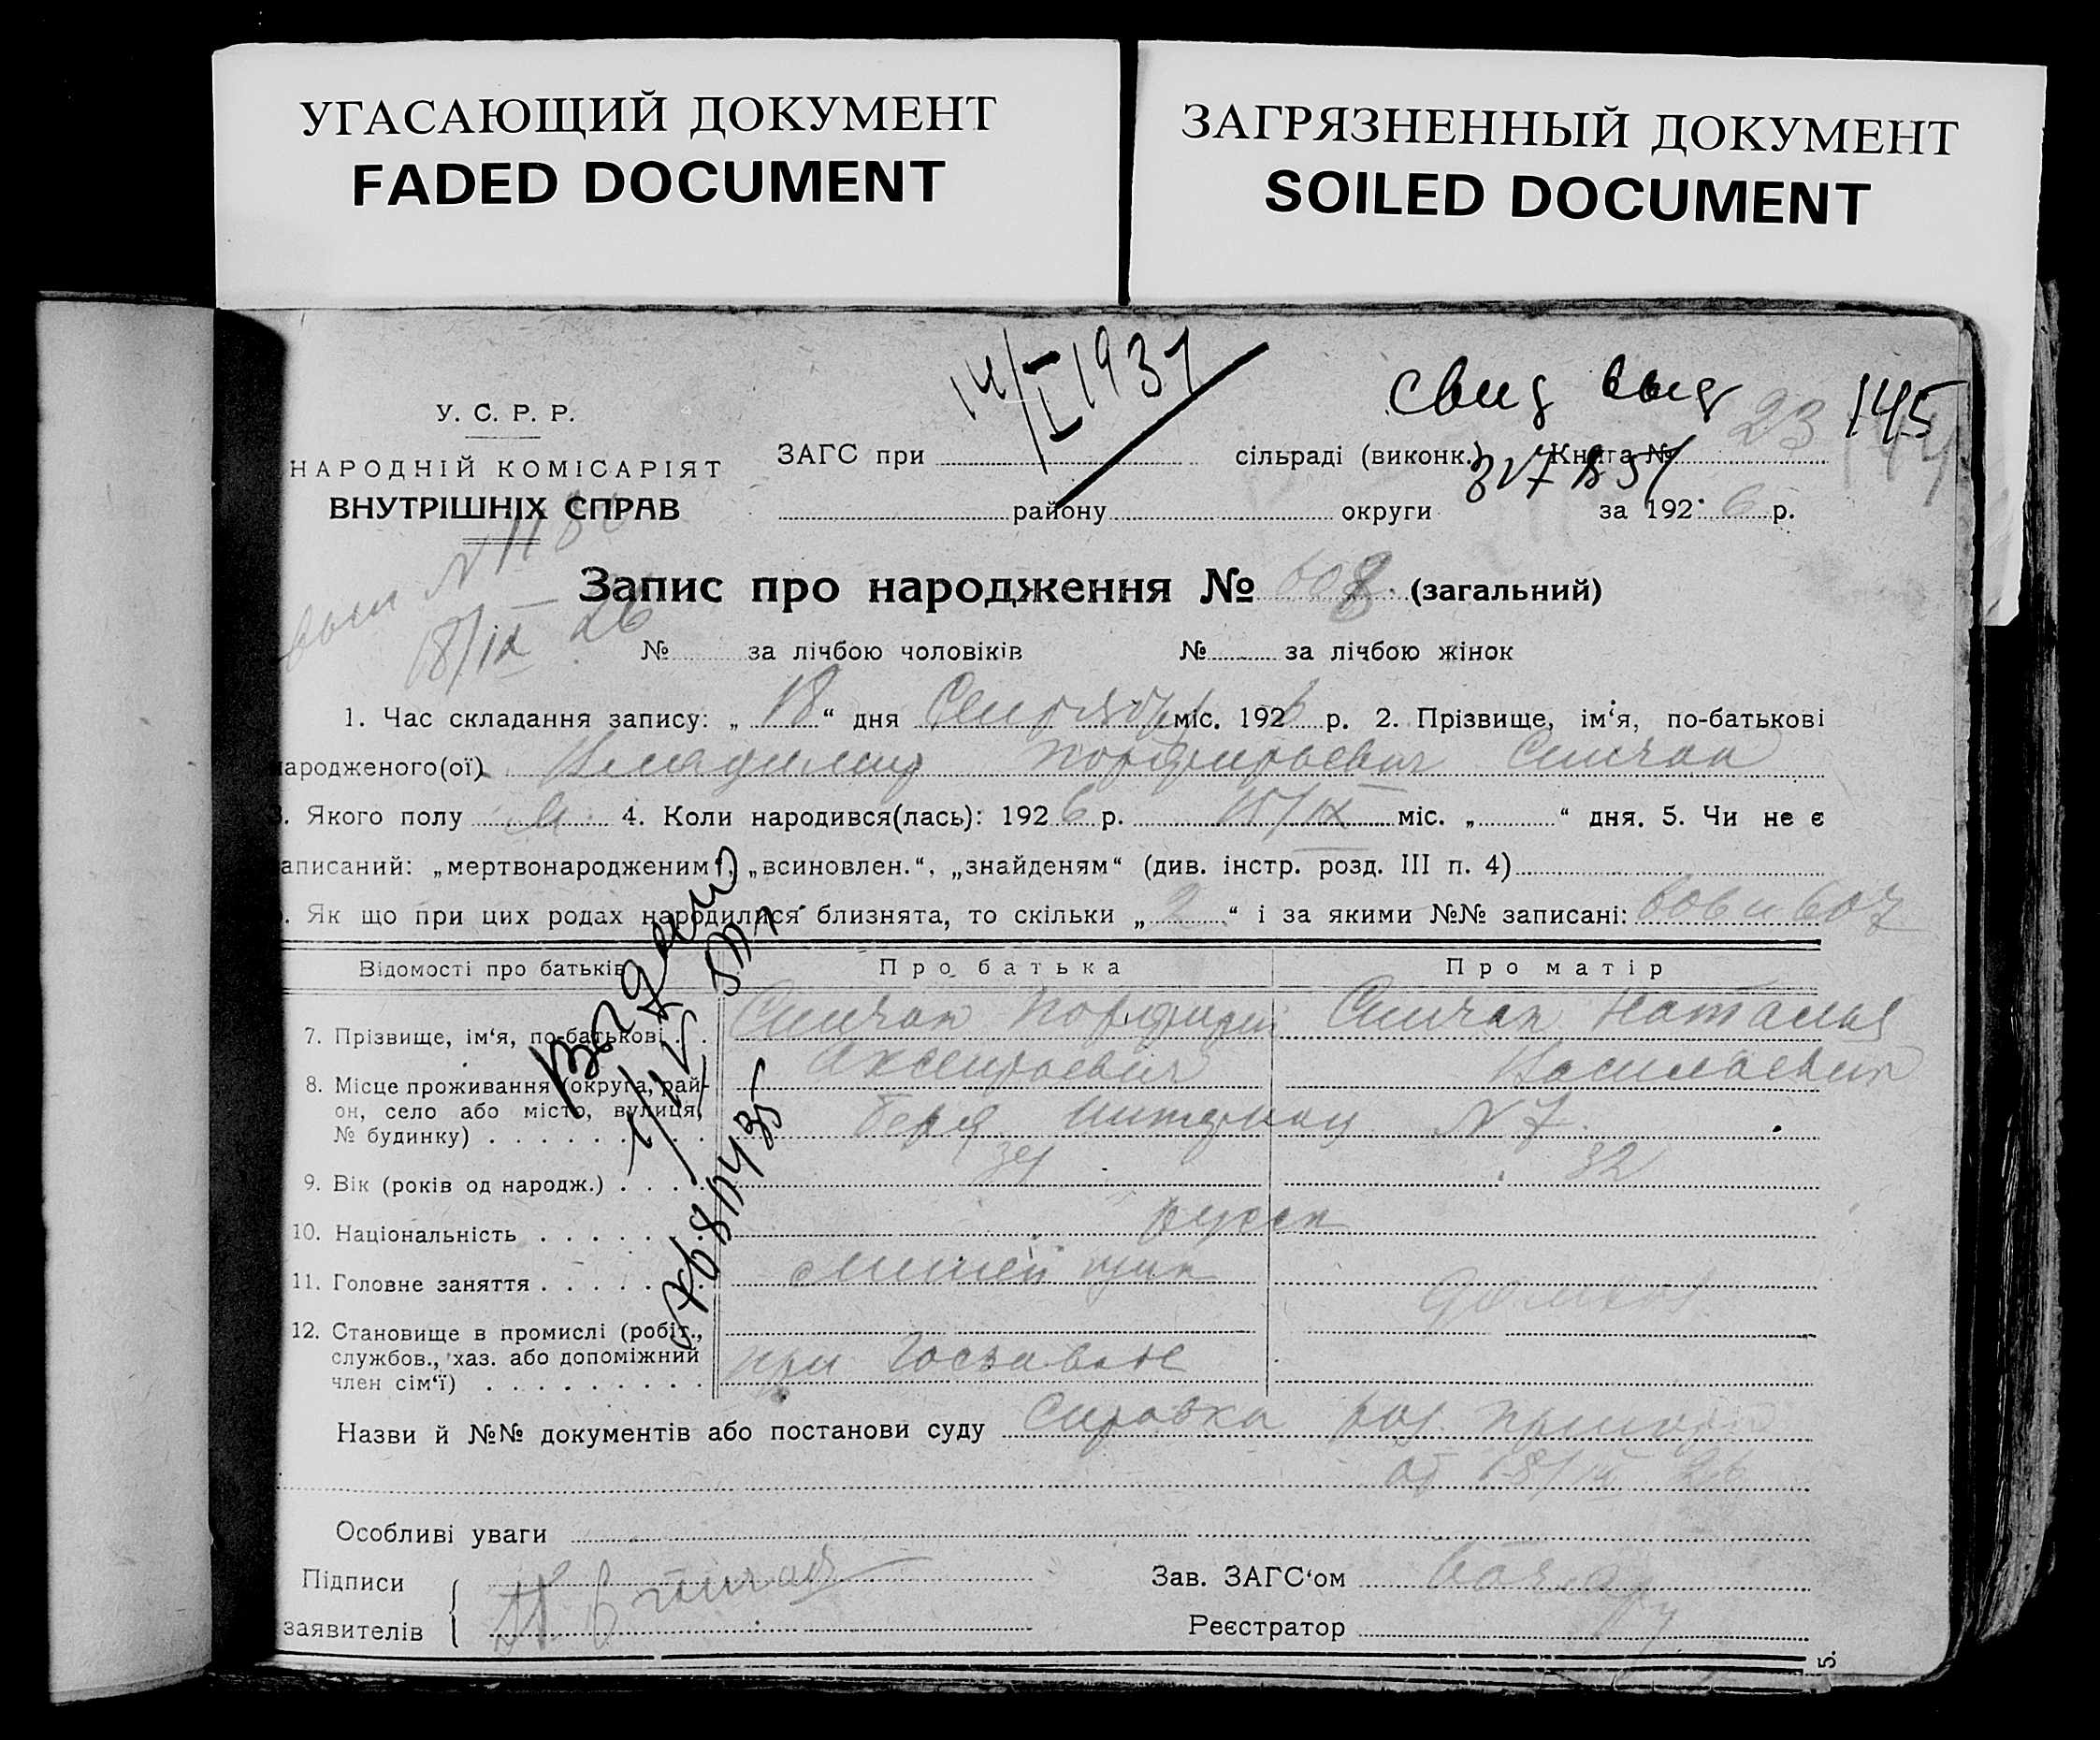 УГАСАЮЩИЙ ДОКУМЕНТ
FADED DOCUMENT
ЗАГРЯЗНЕННЫЙ ДОКУМЕНТ
SOILED DOCUMENT
14/I 1937
свид выд
23
145
144
У. С. Р. Р.
НАРОДНІЙ КОМІСАРІЯТ
ВНУТРІШНІХ СПРАВ
ЗАГС при сільраді (виконк.) Книга №
району округи за 192 6 р.
N 1180
18/IX 26
Запис про народження № 608 (загальний)
№ за лічбою чоловіків № за лічбою жінок
1. Час складання запису: „ 18 “ дня Сентября міс. 192 6 р. 2. Прізвище, ім‘я, по-батькові
народженого(ої) Владимир Порфирьевич Синчак
3. Якого полу м. 4. Коли народився(лась): 192 6 р. 15/IX міс. „ “ дня. 5. Чи не є
записаний: „мертвонародженим“, „всиновлен.“, „знайденям“ (див. інстр. розд. III п. 4)
Як що при цих родах народилися близнята, то скільки „ 2 “ і за якими №№ записані: 606 и 607
Відомості про батьків Про батька Про матір
7. Прізвище, ім‘я, по-батькові Синчак Порфирий Синчак Наталия
8. Місце проживання (округа, рай- Васильевна
он, село або місто, вулиця,
№ будинку) N 7
9. Вік (років од народж.) 34 32
10. Національність русск
11. Головне заняття
12. Становище в промислі (робіт.,
службов., хаз. або допоміжний при
член сім‘ї)
Выдан
Назви й №№ документів або постанови суду Справка
от 18/IX 26
Особливі уваги
Підписи
заявителів
Зав. ЗАГС‘ом
Реєстратор
5.